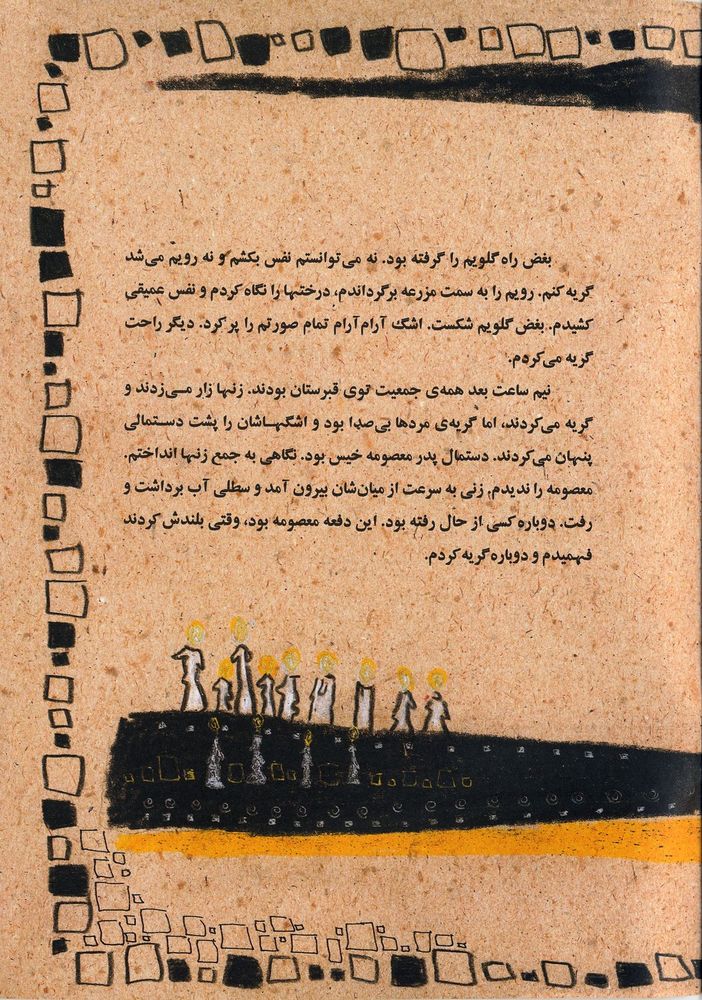 بغض راه گلویم را گرفته بود. نه می‌توانستم نفس بکشم و نه رویم می‌شد
گریه کنم. رویم را به سمت مزرعه برگرداندم، درختها را نگاه کردم و نفس عمیقی
کشیدم. بغض گلویم شکست. اشگ آرام‌آرام تمام صورتم را پر کرد. دیگر راحت
گریه می‌کردم.
نیم ساعت بعد همه‌ی جمعیت توی قبرستان بودند. زنها زار مـی‌زدند و
گریه می‌کردند، اما گریه‌ی مردها بی‌صدا بود و اشگهـاشان را پشت دستـمالی
پنهان می‌کردند. دستمال پدر معصومه خیس بود. نگاهی به جمع زنها انداختم.
معصومه را ندیدم. زنی به سرعت از میان‌شان بیرون آمد و سطلی آب برداشت و
رفت. دوباره کسی از حال رفته بود. این دفعه معصومه بود، وقتی بلندش کردند
فهمیدم و دوباره گریه کردم.